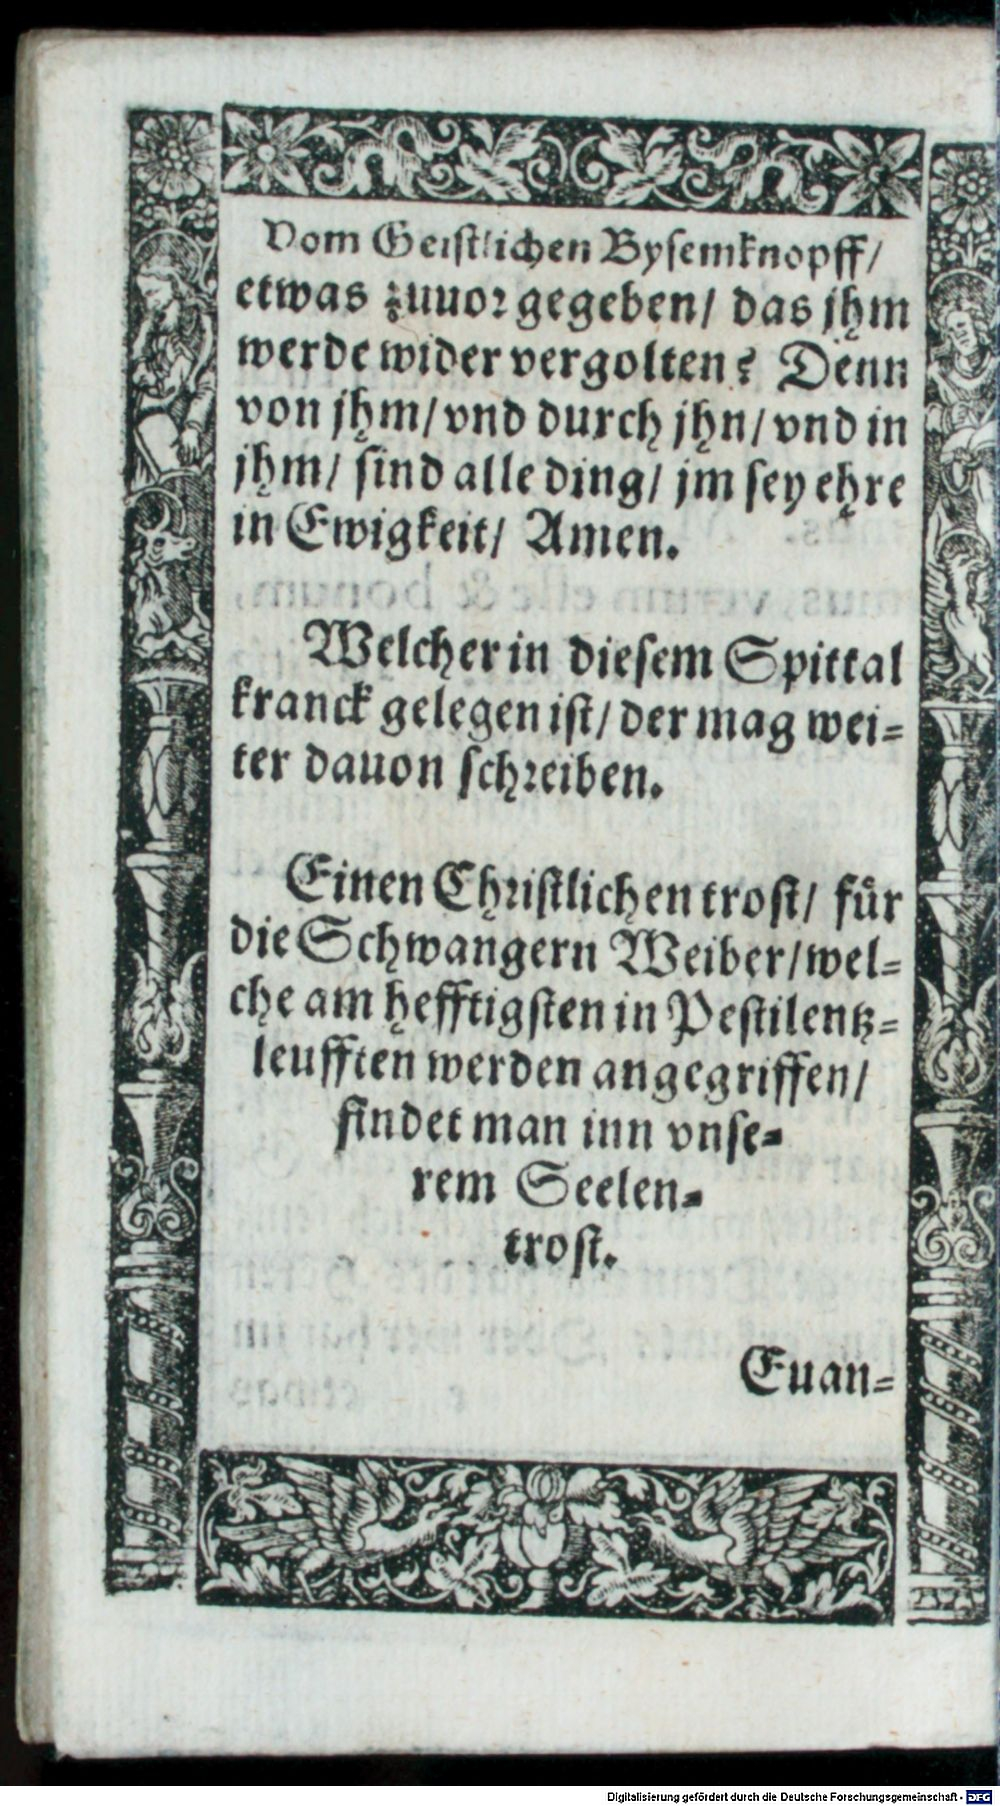 Vom Geistlichen Bysemknopff/
etwas zuuor gegeben/ das jhm
werde wider vergolten? Denn
von jhm/ vnd durch jhn/ vnd in
jhm/ sind alle ding/ jm sey ehre
in Ewigkeit/ Amen.
Welcher in diesem Spittal
kranck gelegen ist/ der mag wei-
ter dauon schreiben.
Einen Christlichen trost/ fuͤr
die Schwangern Weiber/ wel-
che am hefftigsten in Pestilentz-
leufften werden angegriffen/
findet man inn vnse-
rem Seelen-
trost.
Euan-
Digitalisierung gefördert durch die Deutsche Forschungsgemeinschaft - DFG